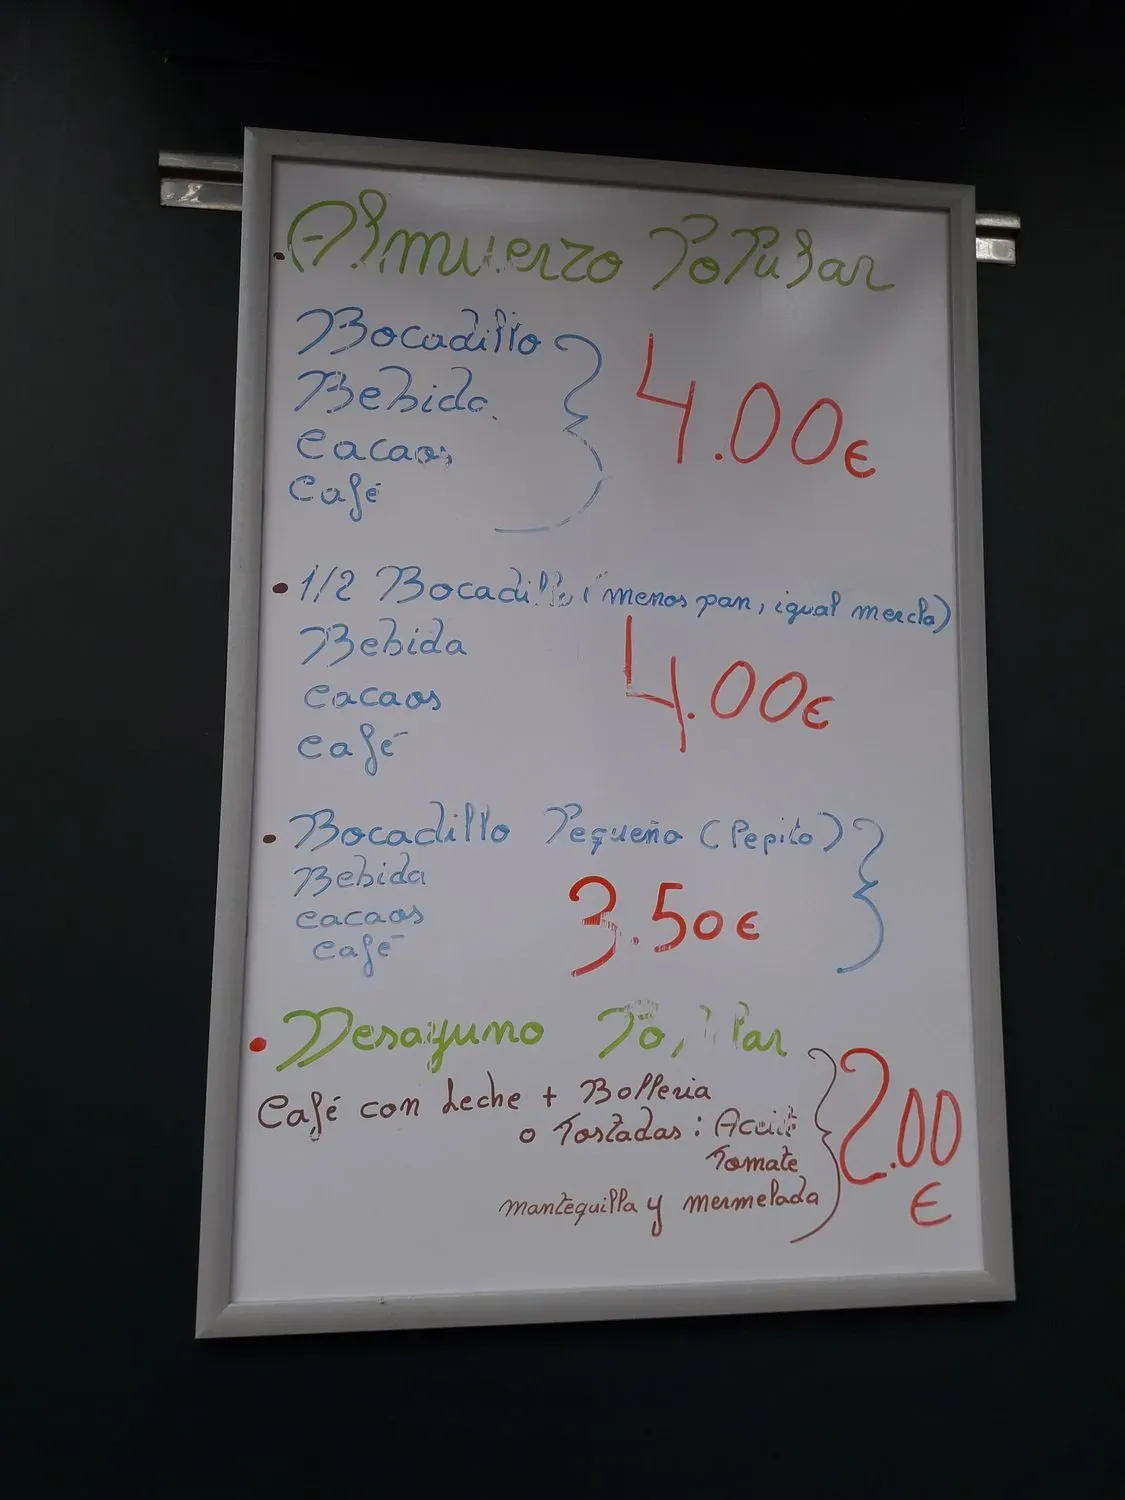 Almuerzo Popular
Bocadillo
Bebida
Cacaos
Café
4.00€
1/2 Bocadillo (menos pan, igual mezcla)
Bebida
Cacaos
Café
4.00€
Bocadillo Pequeño (Pepito)
Bebida
Cacaos
Café
3.50€
Desayuno Popular
Café con Leche + Bolleria
o Tostadas: Aceite
Tomate
mantequilla y mermelada
2.00
€